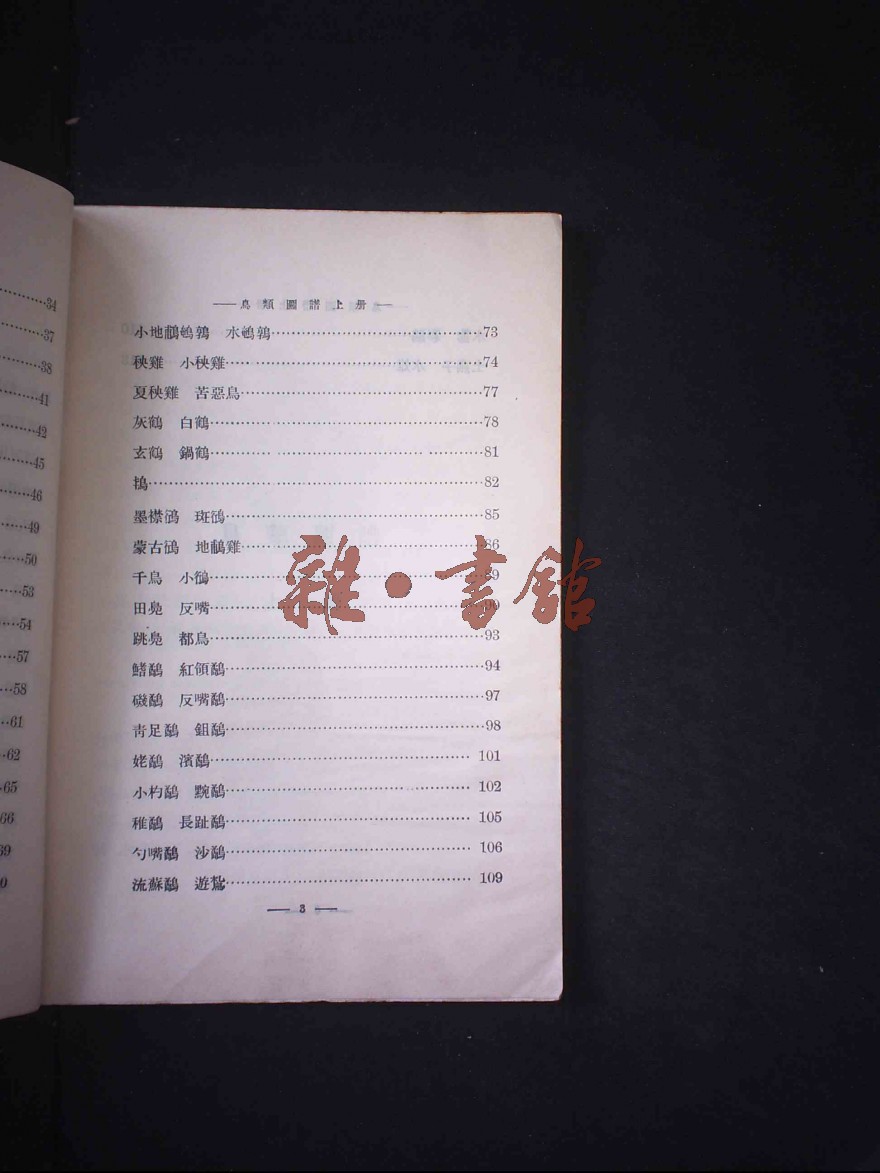 34
37
38
41
42
45
46
49
50
53
54
57
58
61
62
65
66
69
0
—鳥類圖譜上册—
小地鷸鵪鶉 水鵪鶉……73
秧雞 小秧雞……74
夏秧雞 苦惡鳥……77
灰鶴 白鶴……78
玄鶴 鍋鶴……81
鴇……82
墨襟鴴 斑鴴……85
蒙古鴴 地鷸雞……86
千鳥 小鴴……89
田鳧 反嘴……90
跳鳧 都鳥……93
鰭鷸 紅領鷸……94
磯鷸 反嘴鷸……97
靑足鷸 鉏鷸……98
姥鷸 濱鷸……101
小杓鷸 鷸……102
稚鷸 長趾鷸……105
勺嘴鷸 沙鷸……106
流蘇鷸 遊鶿……109
— 3 —
雜·書館